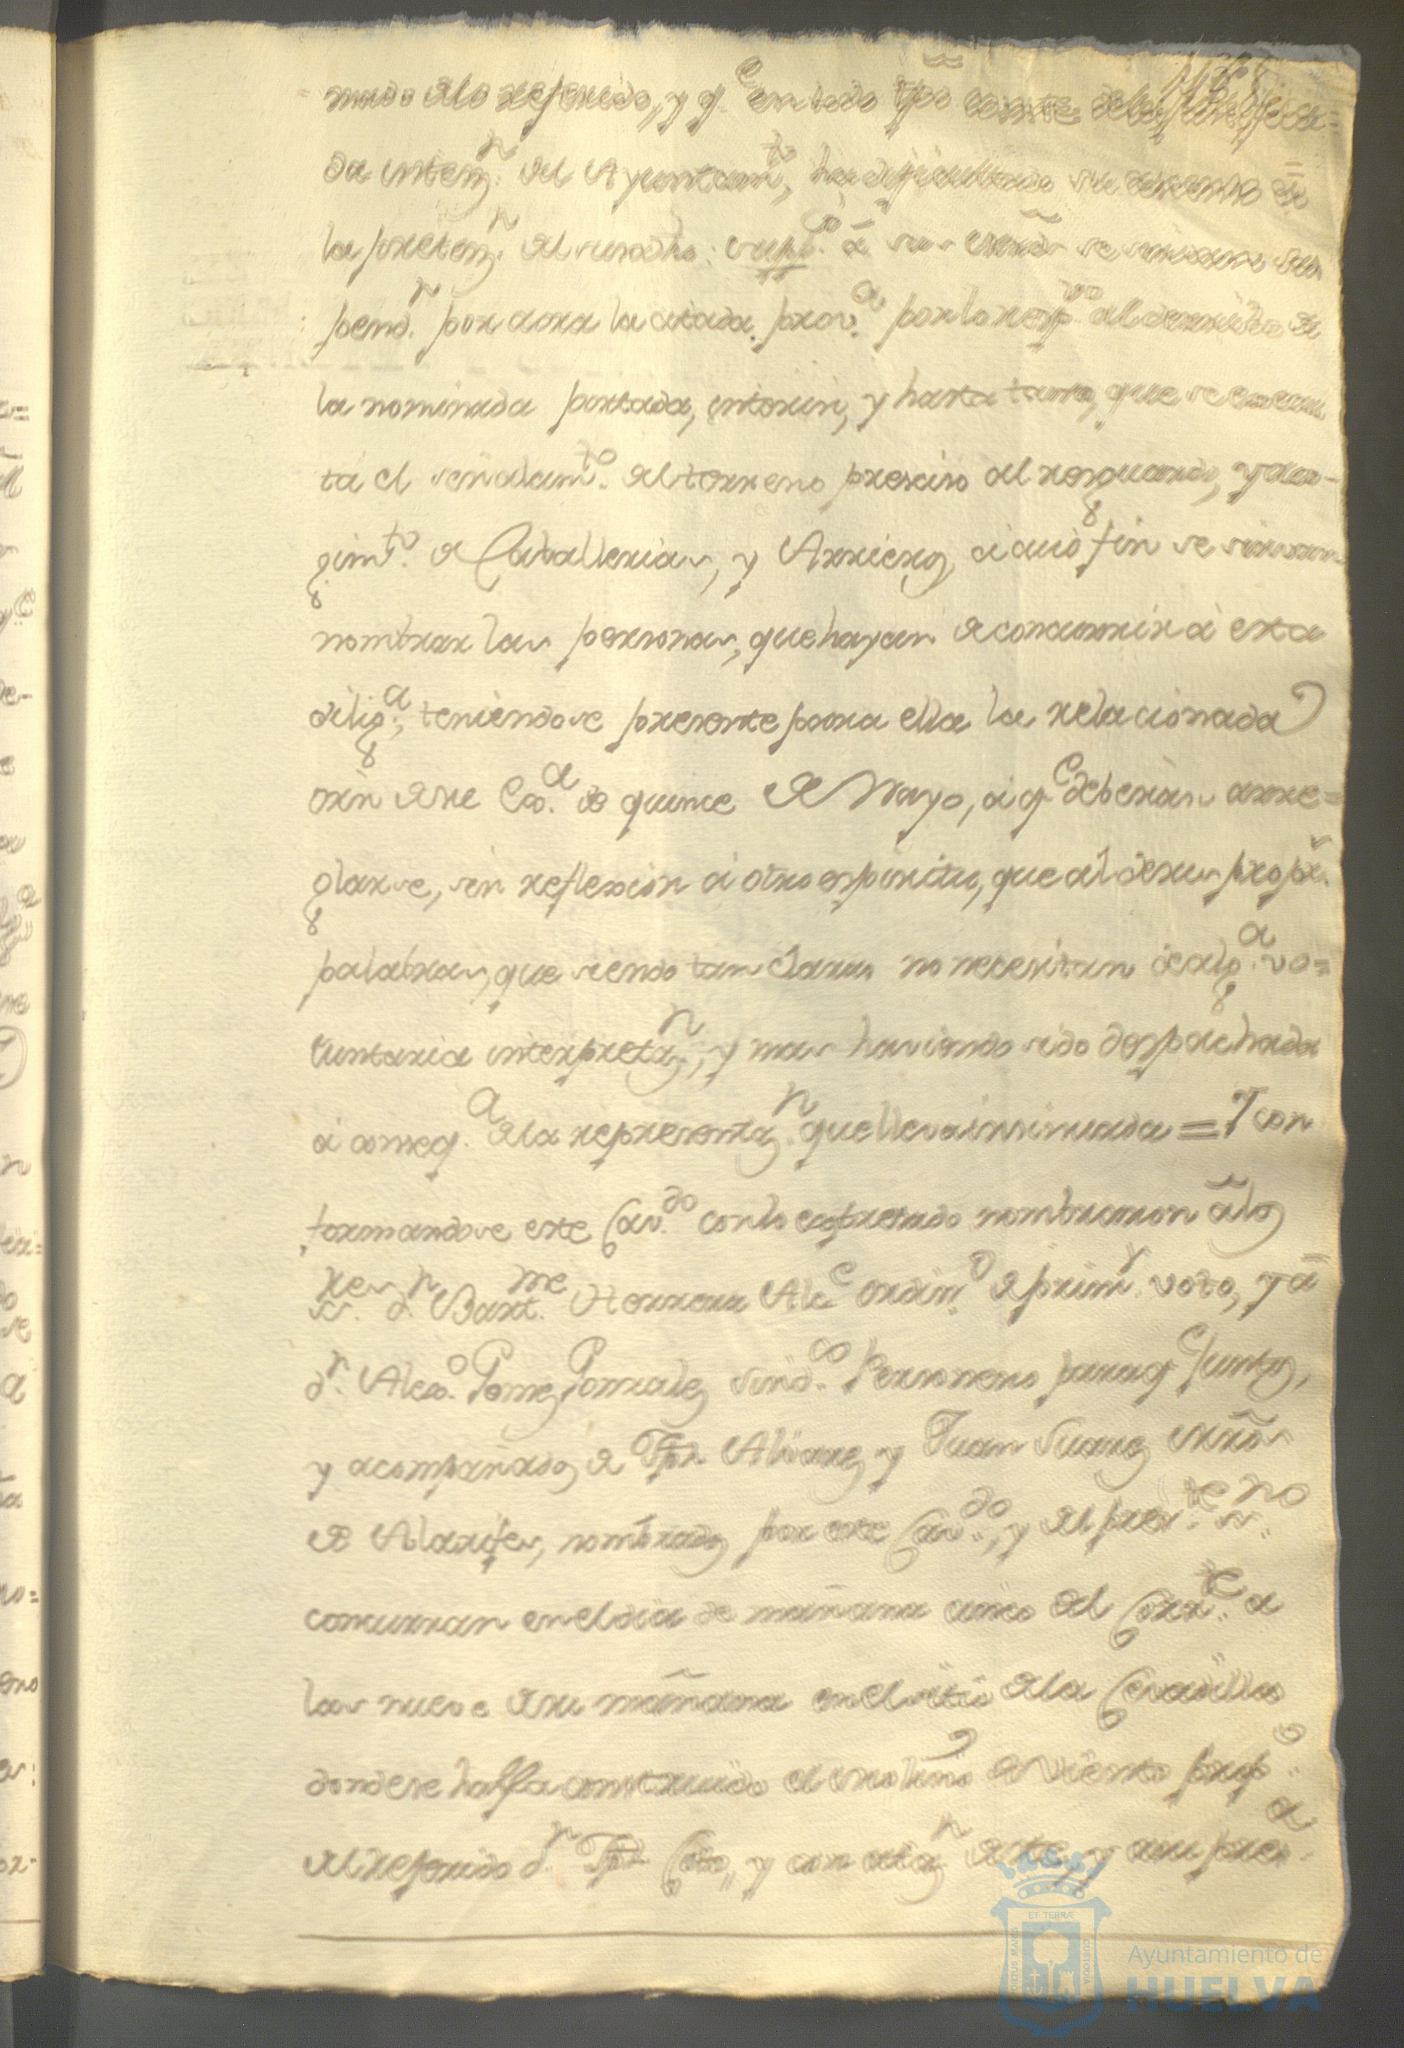 mado alo referido, y q.e en todo tpõ conste
da inteng.n del Ayuntam.to, ha dificultado
la preteng.n del susodho: supp.co â sus mrds se sirvan sus
pend.r por aora la citada prov.a por lo resp.vo al derrivo de
la nominada portada, interin, y hasta tanto, que se execu
ta el señalam.to del terreno preciso del resguardo, y reco-
gim.to de Cavallerias, y Arrieros, à cuio fin se sirvan
nombrar las personas, que hayan de concurrir à esta
dilig.a, teniendose presente para ella la relacionada
orñ de su Exc.a de quince de Mayo, à q.e deberàn arre=
glarse, sin reflexion à otro espiritu, que al de sus prop.s
palabras, que siendo tan claras no necesitan de alg.a vo=
luntaria interpretaz.n, y mas haviendo sido despachada
à conseq.a de la representaz.n que lleva insinuada = Y con
formandose este Cav.do con lo expresado nombraron â los
s.res d.n Bart.me Herrera Alc.e ordin.o de prim.r voto, y â
d.n Alexo Gomez Gonzalez sind.co Personero para q.e juntos,
y acompañados de Tph Alvarez y Juan Suarez mrõs
de Alarifes, nombrados por este Cav.do, y del pres.te ss.no
concurran en el dia de mañana cinco del Corr.te a
las nueve de su mañana en el sitio de la Cevadilla
donde se halla construido el molino de Viento prop.o
del referido d.n Tph Coto, y con ataz.n de este, y a su pres.a
Ayuntamiento de
HUELVA